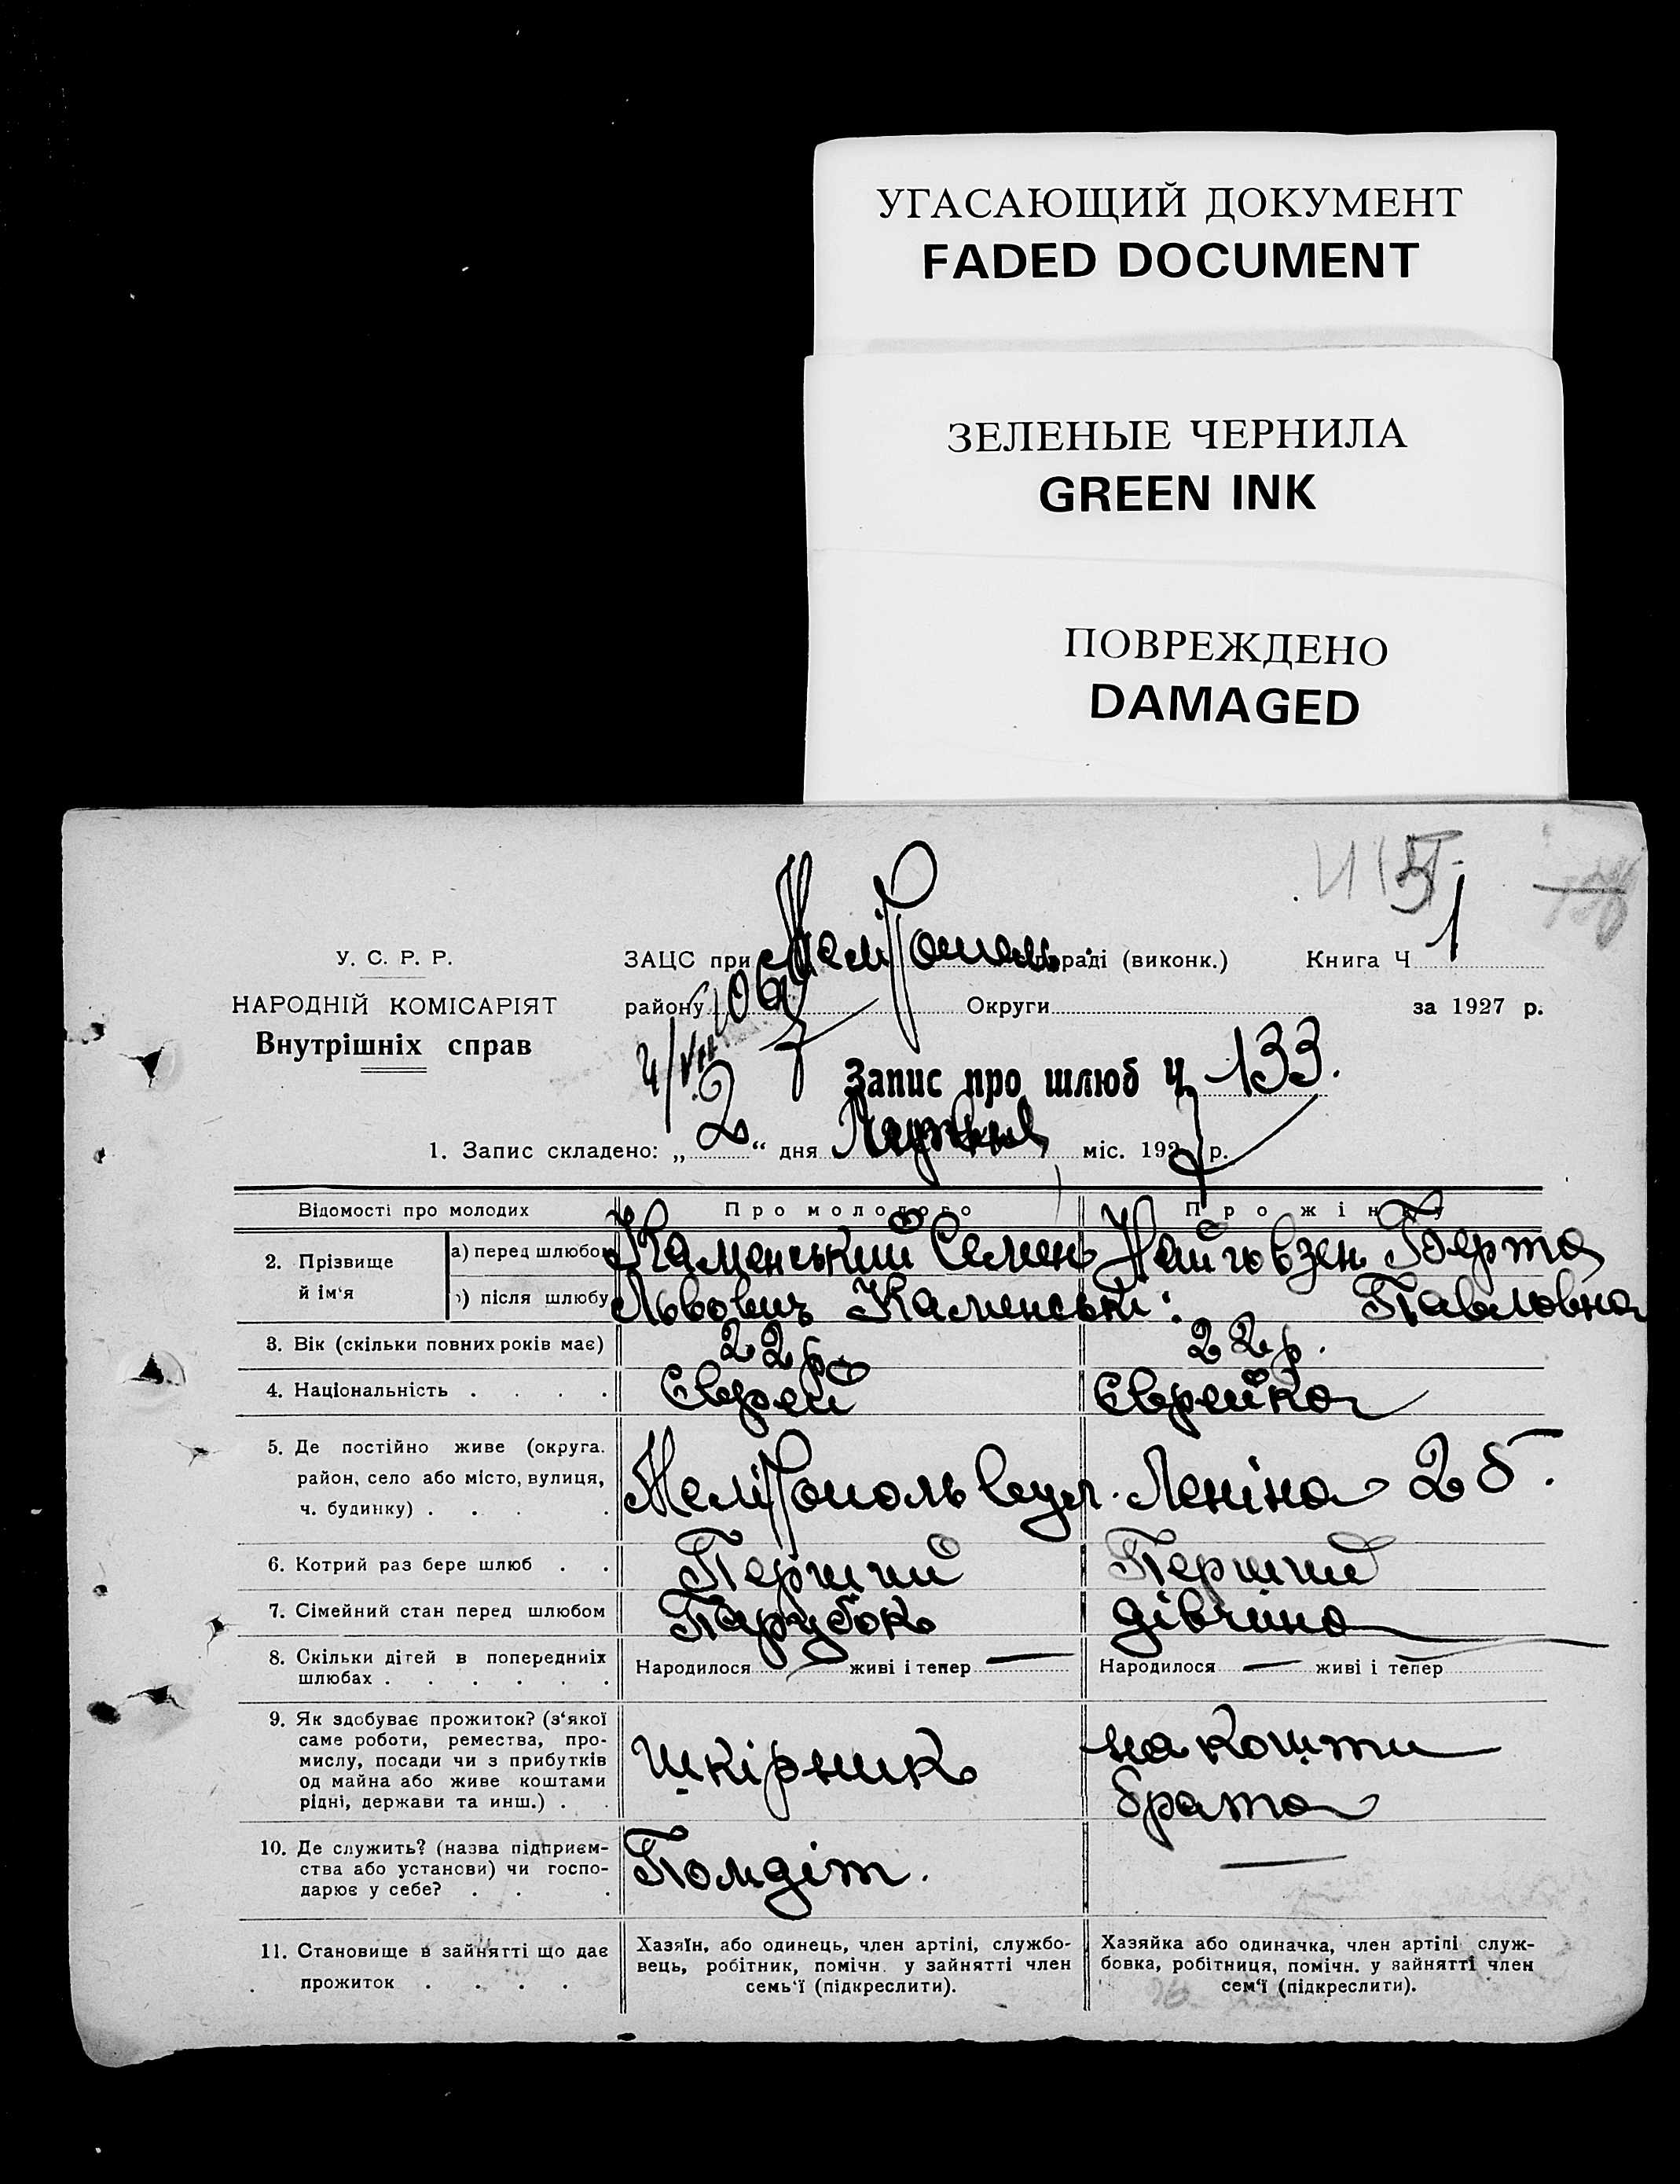 УГАСАЮЩИЙ ДОКУМЕНТ
FADED DOCUMENT
ЗЕЛЕНЫЕ ЧЕРНИЛА
GREEN INK
ПОВРЕЖДЕНО
DAMAGED
У. С. Р. Р.
НАРОДНІЙ КОМІСАРІЯТ
Внутрішніх справ
ЗАЦС при Меліtополь раді (виконк.) Книга Ч 1
району Округи за 1927 р.
Запис про шлюб Ч. 133.
1. Запис складено: „ 2 “ дня міс. 1927 р.
Відомості про молодих Про молодого Про жінку
2. Прізвище й ім‘я
а) перед шлюбом Каменський Семен Берта
б) після шлюбу Львович Каменські: Павловна
3. Вік (скільки повних років має) 22 р. 22 р.
4. Національність . . . . Єврей Єврейка
5. Де постійно живе (округа.
район, село або місто, вулиця,
ч. будинку) . . . . Меліtополь вул. Леніна 25.
6. Котрий раз бере шлюб . . Перший Перший
7. Сімейний стан перед шлюбом Парубок дівчина
8. Скільки дітей в попередниіх
шлюбах . . . . . . Народилося — живі і тепер — Народилося — живі і тепер
9. Як здобуває прожиток? (з‘якої
саме роботи, ремества, про-
мислу, посади чи з прибутків
од майна або живе коштами
рідні, держави та инш.) . . шкірник на кошти
брата
10. Де служить? (назва підприєм-
ства або установи) чи госпо-
дарює у себе? . . . Помдіт. —
11. Становище в зайнятті що дає
прожиток . . . .
Хазяїн, або одинець, член артілі, службо-
вець, робітник, помічн. у зайнятті член
семь‘ї (підкреслити).
Хазяйка або одиначка, член артілі служ-
бовка, робітниця, помічн. у зайнятті член
сем‘ї (підкреслити).